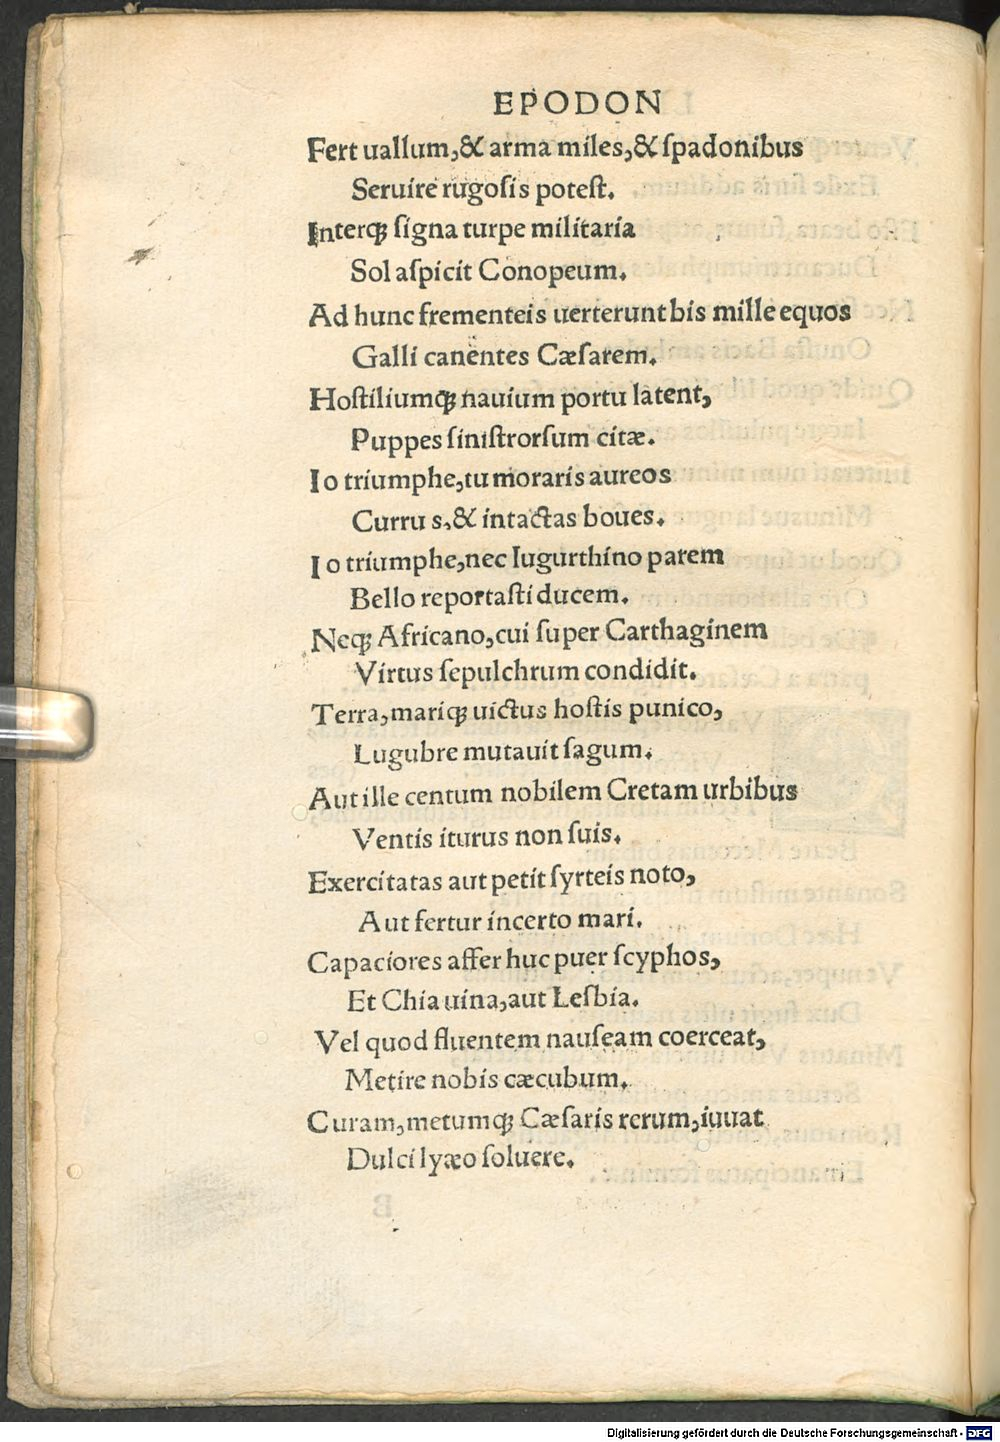 EPODON
Fert uallum,& arma miles,& ſpadonibus
Seruire rugoſis poteſt.
Interqꝫ ſigna turpe militaria
Sol aſpicit Conopeum.
Ad hunc frementeis uerterunt bis mille equos
Galli canentes Cæſarem.
Hoſtiliumqꝫ nauium portu latent,
Puppes ſiniſtrorſum citæ.
Io triumphe,tu moraris aureos
Curru s,& intactas boues.
Io triumphe,nec Iugurthino parem
Bello reportaſti ducem.
Neqꝫ Africano,cui ſuper Carthaginem
Virtus ſepulchrum condidit.
Terra,mariqꝫ uictus hoſtis punico,
Lugubre mutauit ſagum.
Aut ille centum nobilem Cretam urbibus
Ventis iturus non ſuis.
Exercitatas aut petit ſyrteis noto,
Aut fertur incerto mari.
Capaciores affer huc puer ſcyphos,
Et Chia uina,aut Leſbia.
Vel quod fluentem nauſeam coerceat,
Metire nobis cæcubum.
Curam,metumqꝫ Cæſaris rerum,iuuat
Dulci lyæo ſoluere.
Digitalisierung gefördert durch die Deutsche Forschungsgemeinschaft - DFG